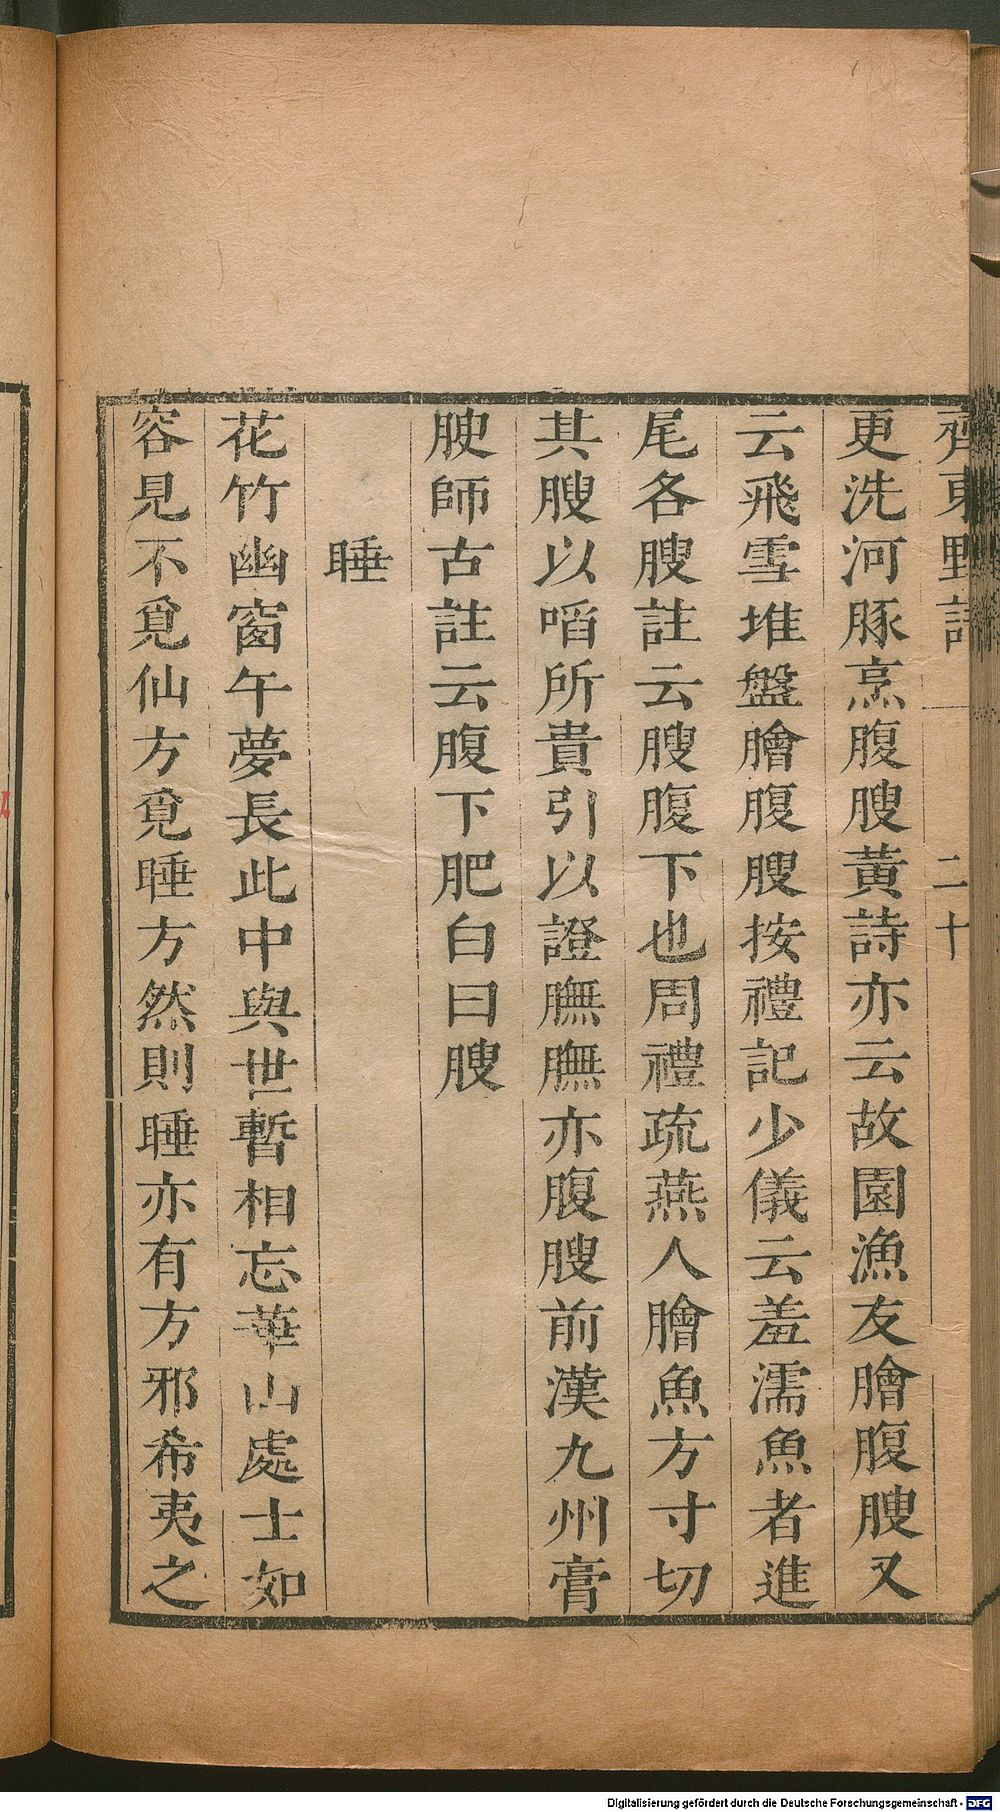 齊東野語 二十
更洗河豚烹腹腴黃詩亦云故園漁友膾腹腴又
云飛雪堆盤膾腹腴按禮記少儀云羞濡魚者進
尾各腴註云腴腹下也周禮疏燕人膾魚方寸切
其腴以㗖所貴引以證膴膴亦腹腴前漢九州膏
腴師古註云腹下肥白曰腴
睡
花竹幽窗午夢長此中與世暫相忘華山處士如
容見不覓仙方覓睡方然則睡亦有方邪希夷之
Digitalisierung gefördert durch die Deutsche Forschungsgemeinschaft - DFG